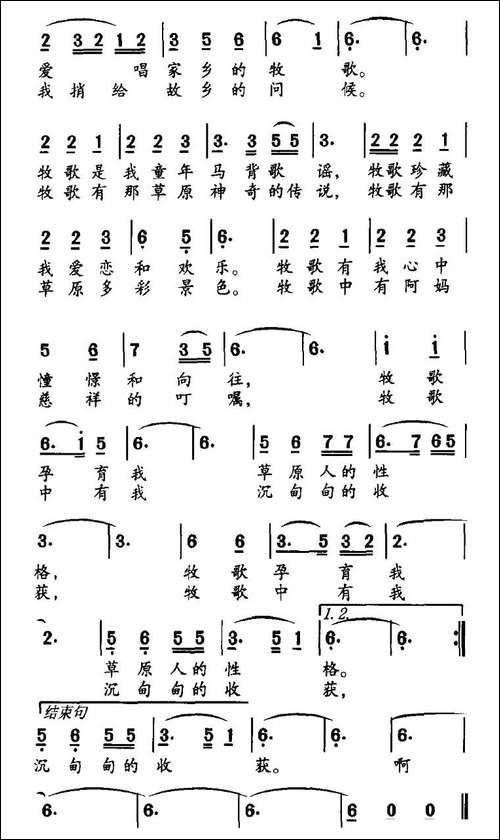 2 3 2 1 2 | 3 5 6 | 6 1 | 6. | 6. |
爱 唱家乡的牧 歌。
我捎给 故乡的问 候。
2 2 1 | 2 2 3 | 3. 3 5 5 | 3. | 2 2 2 1 |
牧歌是我童年马背歌 谣，牧歌珍藏
牧歌有那草原神奇的传说，牧歌有那
2 2 3 | 6 5 | 6. | 2 2 1 | 2 2 3 |
我爱恋和欢乐。牧歌有我心中
草原多彩景色。牧歌中有阿妈
5 6 | 7 3 5 | 6. | 6. | i i |
憧憬和向往，牧歌
慈祥的叮嘱，牧歌
6. i 5 | 6. | 6. | 5 6 7 7 | 6. 7 6 5 |
孕 育我 草原人的性
中 有我 沉甸甸的收
3. | 3. | 6 6 | 3. 5 3 2 | 2. |
格，牧歌孕 育我
获，牧歌中 有我
2. | 5 6 5 5 | 3. 5 1 | 1. 2. 6. | 6. :||
草原人的性 格。
沉甸甸的收 获，
结束句
5 6 5 5 | 3. 5 1 | 6. | 6. | 6. |
沉甸甸的收 获。啊
6. | 6. | 6. | 6. | 6 0 0 ||